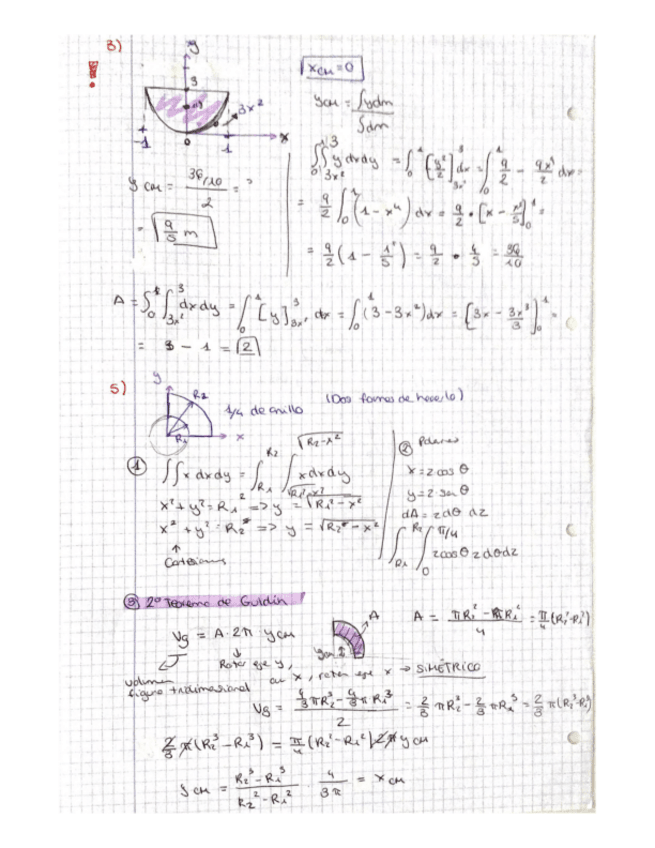 3)
!
y
3
3x²
x
-1
0
1
x_CM = 0
y_CM = ∫ydm / ∫dm
∫₀¹∫_{3x²}^{3} y dx dy = ∫₀¹ [y²/2]_{3x²}^{3} dx = ∫₀¹ 9/2 - 9x⁴/2 dx =
= 9/2 ∫₀¹ (1 - x⁴) dx = 9/2 · [x - x⁵/5]₀¹ =
= 9/2 (1 - 1⁵/5) = 9/2 · 4/5 = 36/10
y_CM = 36/10 / 2 = ?
= 9/5 m
A = ∫₀¹ ∫_{3x²}^{3} dx dy = ∫₀¹ [y]_{3x²}^{3} dx = ∫₀¹ (3 - 3x²) dx = [3x - 3x³/3]₀¹ =
= 3 - 1 = 2
5)
y
R₂
R₁
x
1/4 de anillo
(Dos formas de hacerlo)
① ∫∫ x dx dy = ∫_{R₁}^{R₂} ∫_{√R₁²-x²}^{√R₂-x²} x dx dy
x² + y² = R₁² => y = √R₁² - x²
x² + y² = R₂² => y = √R₂² - x²
↑
Cartesianas
② Polares
x = r cos θ
y = r · sen θ
dA = r dθ dr
∫_{R₁}^{R₂} ∫₀^{π/4} r cos θ r dθ dr
③ 2º Teorema de Guldin
Vg = A · 2π y_CM
A
y_CM
A = πR₂² - πR₁² / 4 = π/4 (R₂² - R₁²)
volumen
figura tridimensional
Rotar eje y,
en x, rotar eje x → SIMÉTRICO
Vg = 4/3 πR₂³ - 4/3 πR₁³ / 2 = 2/3 πR₂³ - 2/3 πR₁³ = 2/3 π(R₂³-R₁³)
2/3 π(R₂³ - R₁³) = π/4 (R₂² - R₁²) 2π y_CM
y_CM = R₂³ - R₁³ / R₂² - R₁² · 4/3π = x_CM